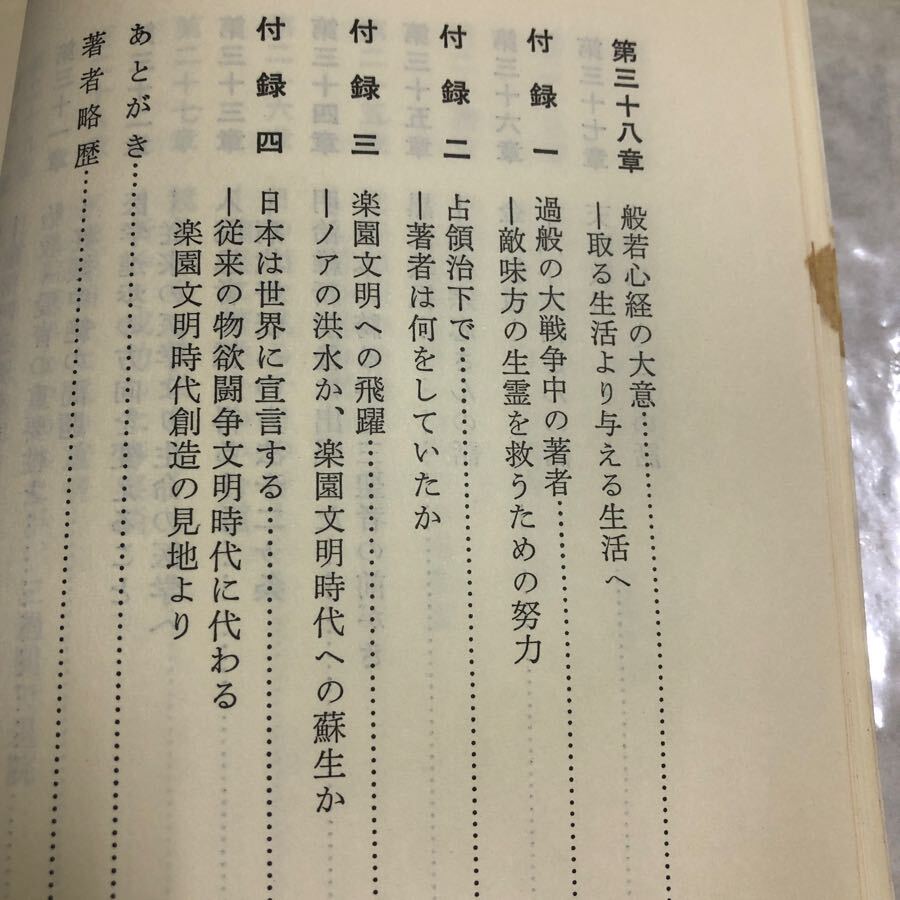 第三十八章 般若心経の大意……
―取る生活より与える生活へ
付録一 過般の大戦争中の著者……
―敵味方の生霊を救うための努力
付録二 占領治下で……
―著者は何をしていたか
付録三 楽園文明への飛躍……
―ノアの洪水か、楽園文明時代への蘇生か
付録四 日本は世界に宣言する……
―従来の物欲闘争文明時代に代わる
楽園文明時代創造の見地より
あとがき……
著者略歴……